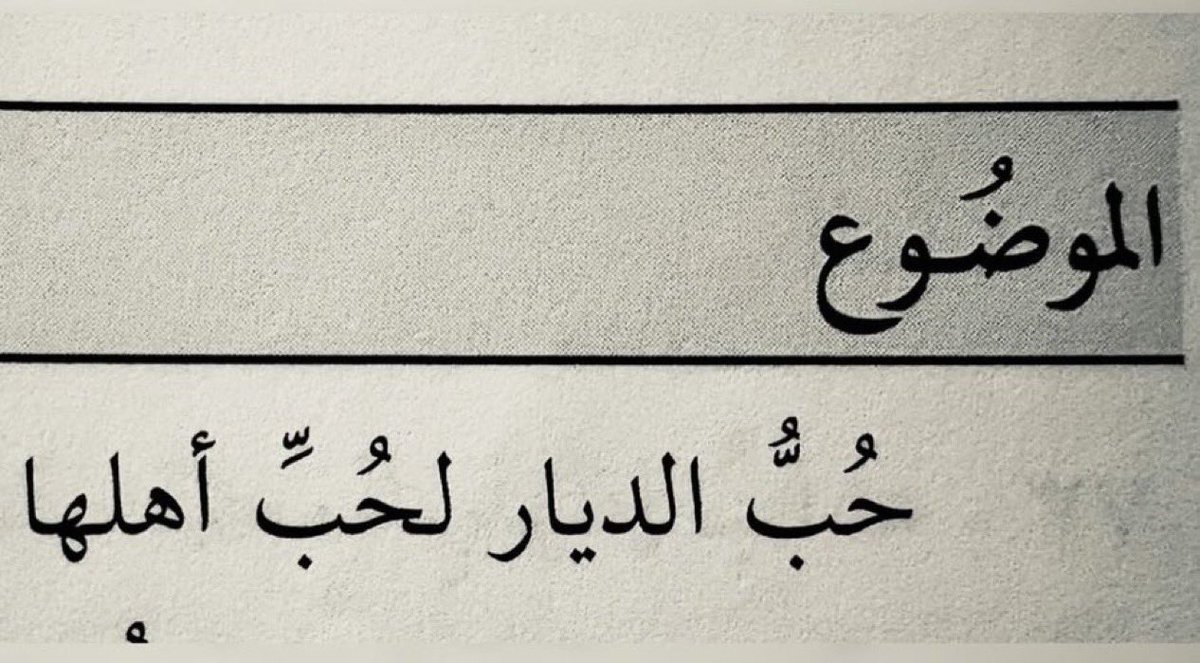 الموضُوع
حُبُّ الديار لحُبِّ أهلها